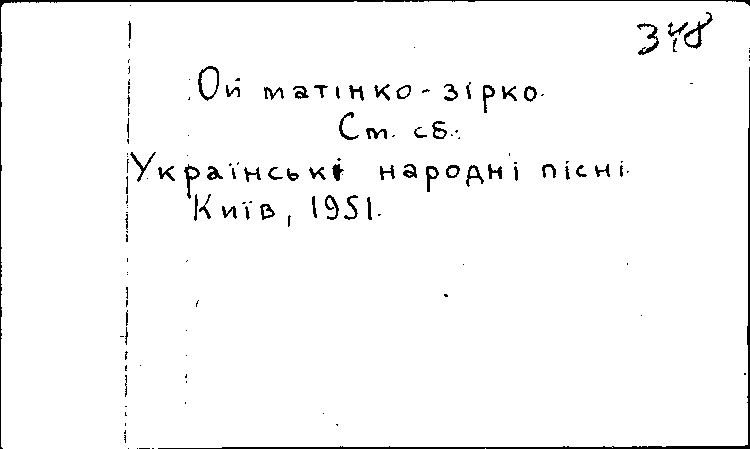 348
Ой матінко-зірко.
Ст. сб.:
Українські народні пісні.
Київ, 1951.